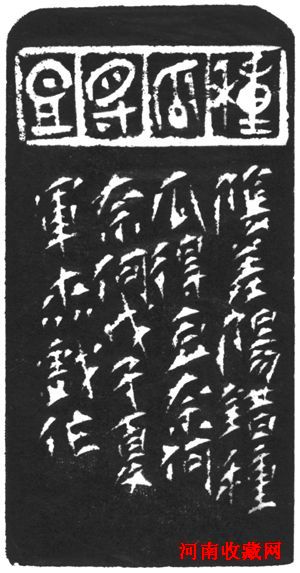 種瓜得豆
陰差陽錯種
瓜得豆奈何
奈何戊子夏
軍杰戲作
河南收藏网